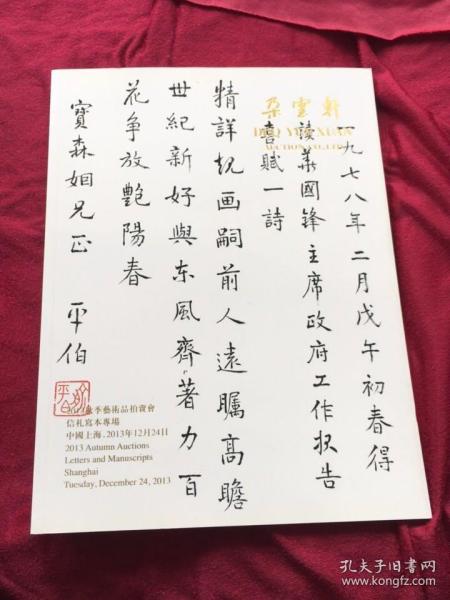 朵雲軒
DUO YUN XUAN
AUCTION CO., LTD.
一九七八年二月戊午初春得
讀華國鋒主席政府工作报告
喜賦一詩
精詳規画嗣前人遠矚高瞻
世紀新好與东風齊著力百
花争放艷陽春
寶森姻兄正 平伯
秋季藝術品拍賣會
信札寫本專場
中國上海，2013年12月24日
2013 Autumn Auctions
Letters and Manuscripts
Shanghai
Tuesday, December 24, 2013
孔夫子旧书网
www.kongfz.com